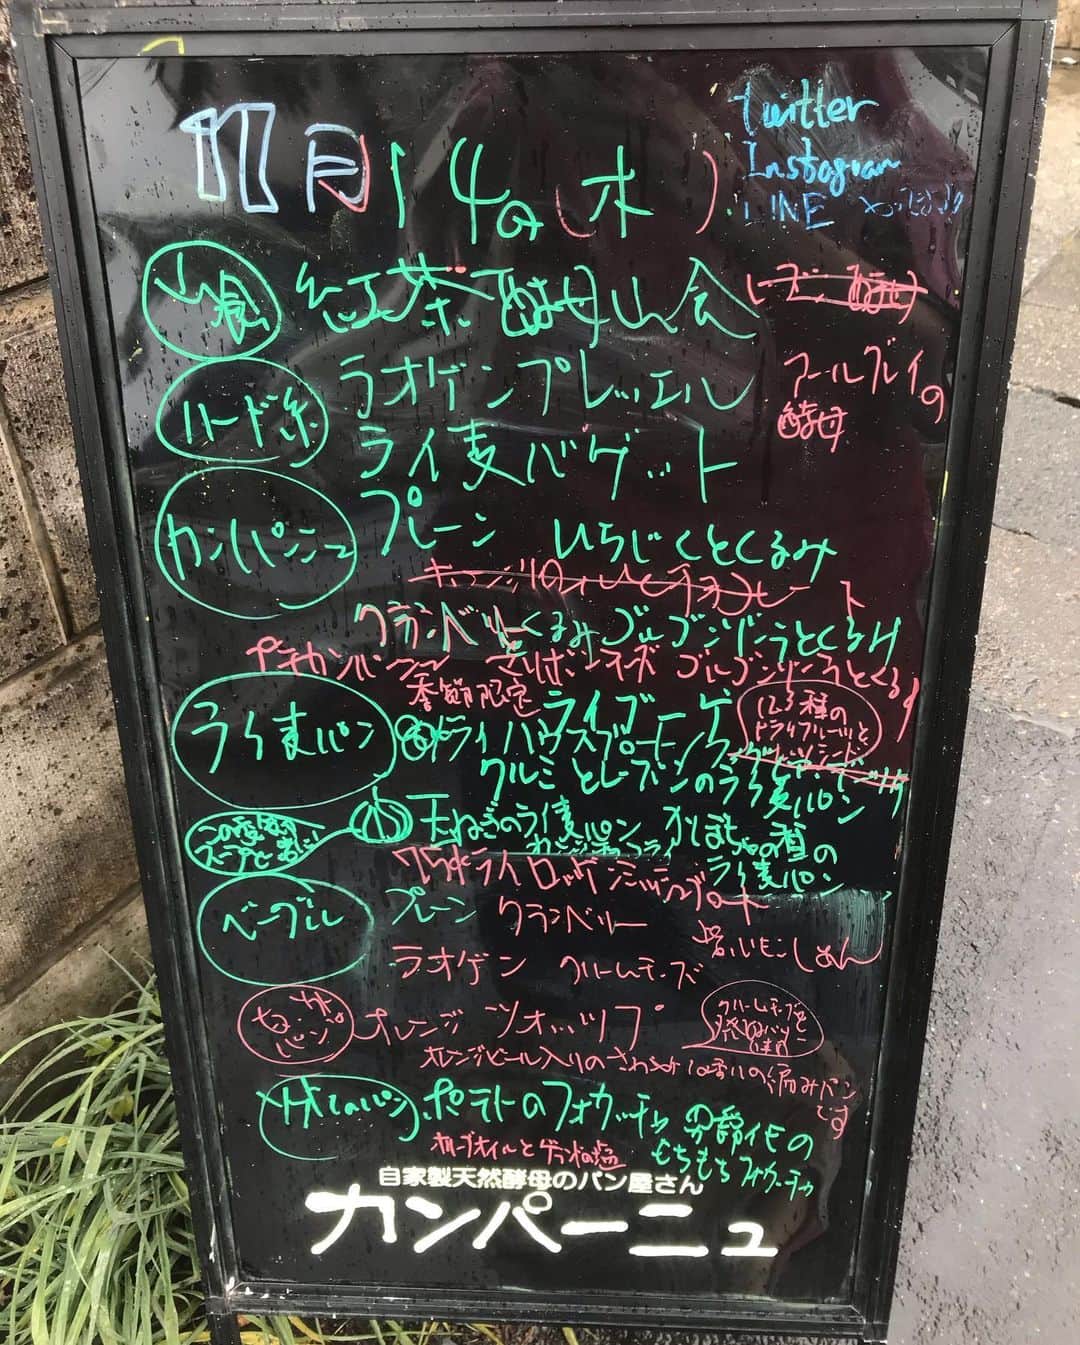 11月14日(木)
twitter
Instagram
LINE
山食 紅茶酵母山会 レーズン酵母
アールグレイの
酵母
ハード系 ラオゲンプレッエル
ライ麦バゲット
カンパーニュ プレーン いちじくとくるみ
クランベリーくるみ ゴルゴンゾーラとくるみ
プチカンパーニュ チーズ ゴルゴンゾーラとくるみ
季節限定
ライ麦パン ドライハウスブーモンク ライブーゲ
123種の
ドライフルーツと
クルミとレーズンのライ麦パン
スープと
玉ねぎのライ麦パン かぼちゃの種の
ライ麦パン
75%ライ ロッゲンミッシュブロート
ベーグル プレーン クランベリー
ラオゲン クリームチーズ 岩いもこしあん
パン オレンジ ツオップ
クリームチーズと
発酵バター
使用
オレンジピール入りのさわやかな香りの編みパン
です
パン ポテトのフォカッチャ 男爵イモの
もちもちフォカッチャ
オリーブオイルとゲランドの塩
自家製天然酵母のパン屋さん
カンパーニュ